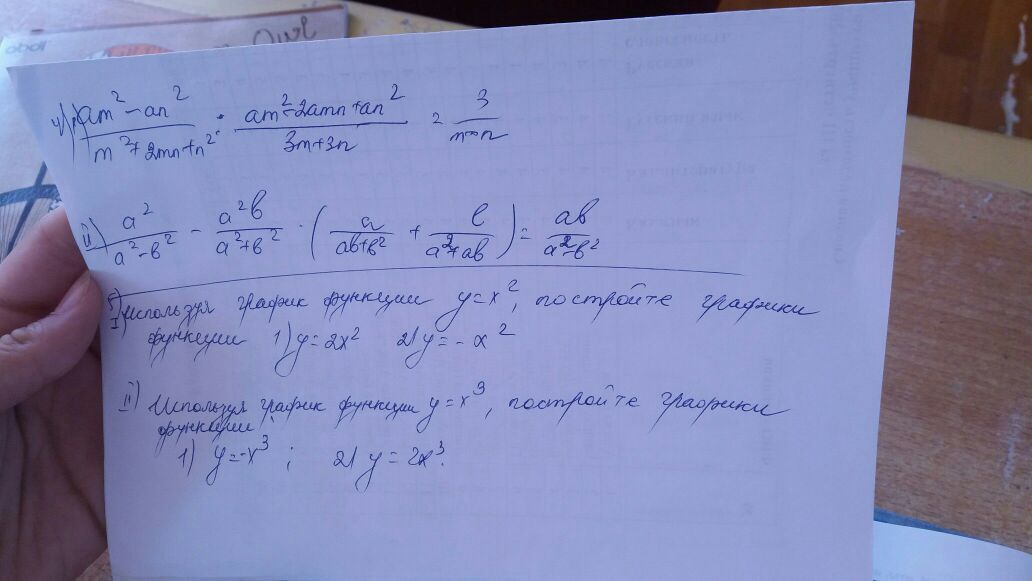 4) I) am² - an² / m² + 2mn + n² : am² - 2amn + an² / 3m + 3n = 3 / m - n
II) a² / a² - b² - a²b / a² + b² · ( a / ab + b² + b / a² + ab ) = ab / a² - b²
5) I) Используя график функции y = x², постройте графики
функции 1) y = 2x² 2) y = - x²
II) Используя график функции y = x³, постройте графики
функции:
1) y = -x³ ; 2) y = 2x³.